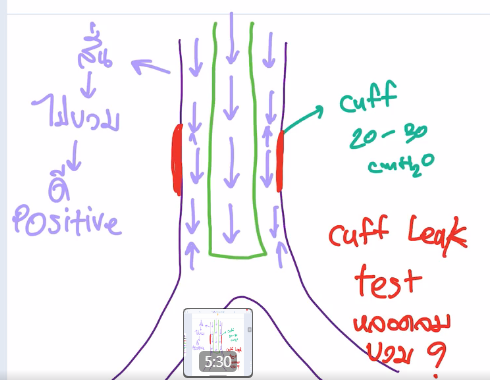 ลั่น
ไม่บวม
ดี
Positive
cuff
20 - 30
cmH2O
cuff Leak
test
หลอดลม
บวม ?
5:30